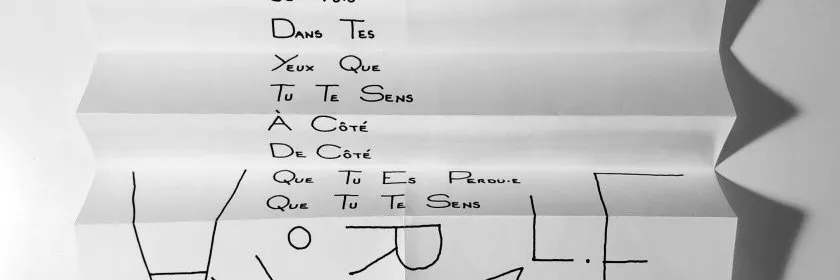 Dans Tes
Yeux Que
Tu Te Sens
À Côté
De Côté
Que Tu Es Perdu·e
Que Tu Te Sens